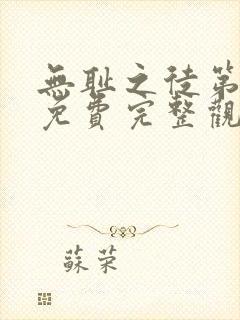 無耻之徒第
免費完整觀
蘇荣